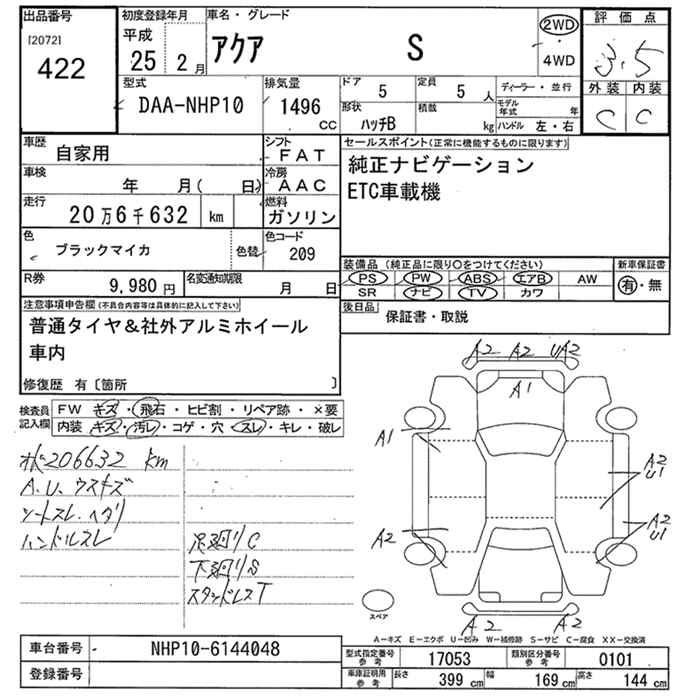 出品番号
[2072]
422
初度登録年月
平成
25 2 月
車名・グレード
アクア S
2WD
4WD
評価点
3.5
外装 内装
C C
型式
DAA-NHP10
排気量
1496
CC
ドア 5
定員 5 人
形状 ハッチB
積載 kg
ディーラー・並行
モデル年式 年
ハンドル 左・右
車歴
自家用
シフト
FAT
車検
年 月( 日)
冷房
AAC
走行
20万6千632 km
燃料
ガソリン
色
ブラックマイカ
色替
色コード
209
R券
9,980円
名変通知期限
月 日
セールスポイント(正常に機能するものに限ります)
純正ナビゲーション
ETC車載機
装備品 (純正品に限り○をつけてください)
PS PW ABS エアB AW
SR ナビ TV カワ
新車保証書
有・無
後日品
保証書・取説
注意事項申告欄(不具合内容等は具体的に記入して下さい)
普通タイヤ&社外アルミホイール
車内
修復歴 有〔箇所 〕
検査員
記入欄
FW キズ・飛石・ヒビ割・リペア跡・×要
内装 キズ・汚レ・コゲ・穴・スレ・キレ・破レ
206632 km
A.U.ウスキズ
シートスレ.ヘタリ
ハンドルスレ
足廻りC
下廻りS
スタッドレスT
A2 A2 UA2
A1
A1
A2
U1
A2
A2
U1
A2 A2
スペア
A-キズ E-エクボ U-凹み W-補修跡 S-サビ C-腐食 XX-交換済
車台番号
NHP10-6144048
登録番号
型式指定番号
参考
17053
類別区分番号
参考
0101
車庫証明用
参考
長さ 399 cm
幅 169 cm
高さ 144 cm